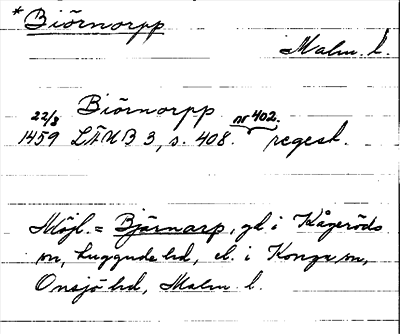 * Biörnorpp
Malm. l.
22/8 Biörnorpp nr 402.
1459 LÄUB 3, s. 408. regest.
Möjl. = Bjärnarp, gd i Kågeröds
sn, Luggude hd, el. i Konga sn,
Onsjö hd, Malm. l.